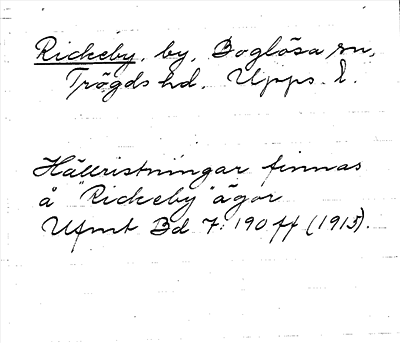 Rickeby, by, Boglösa sn,
Trögds hd. Upps. l.
Hällristningar finnas
å "Rickeby" ägor
Ufmt Bd 7: 190 ff (1915).